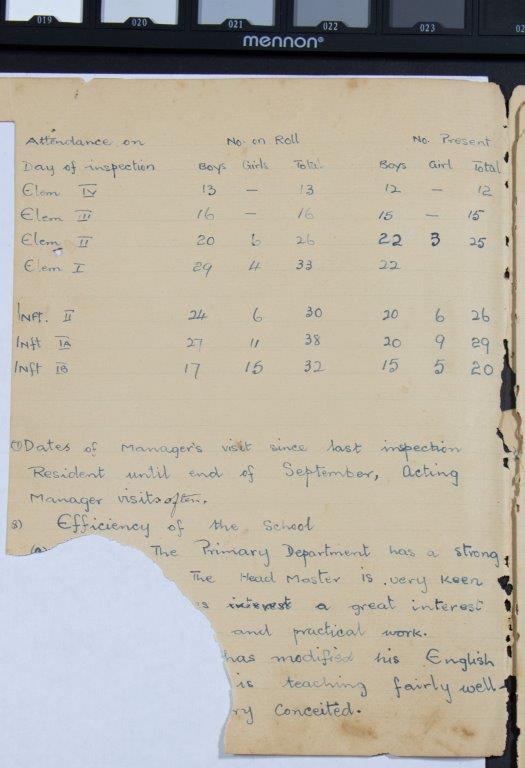 019 020 021 022 023 02
mennon®
Attendance on No. on Roll No. Present
Day of inspection Boys Girls Total Boys Girl Total
Elem IV 13 — 13 12 — 12
Elem III 16 — 16 15 — 15
Elem II 20 6 26 22 3 25
Elem I 29 4 33 22
Inft. II 24 6 30 20 6 26
Inft IA 27 11 38 20 9 29
Inft IB 17 15 32 15 5 20
Dates of Manager's visit since last inspection
Resident until end of September, Acting
Manager visits often.
8) Efficiency of the School
The Primary Department has a strong
The Head Master is very keen
is interest a great interest
and practical work.
has modified his English
is teaching fairly well
ry conceited.